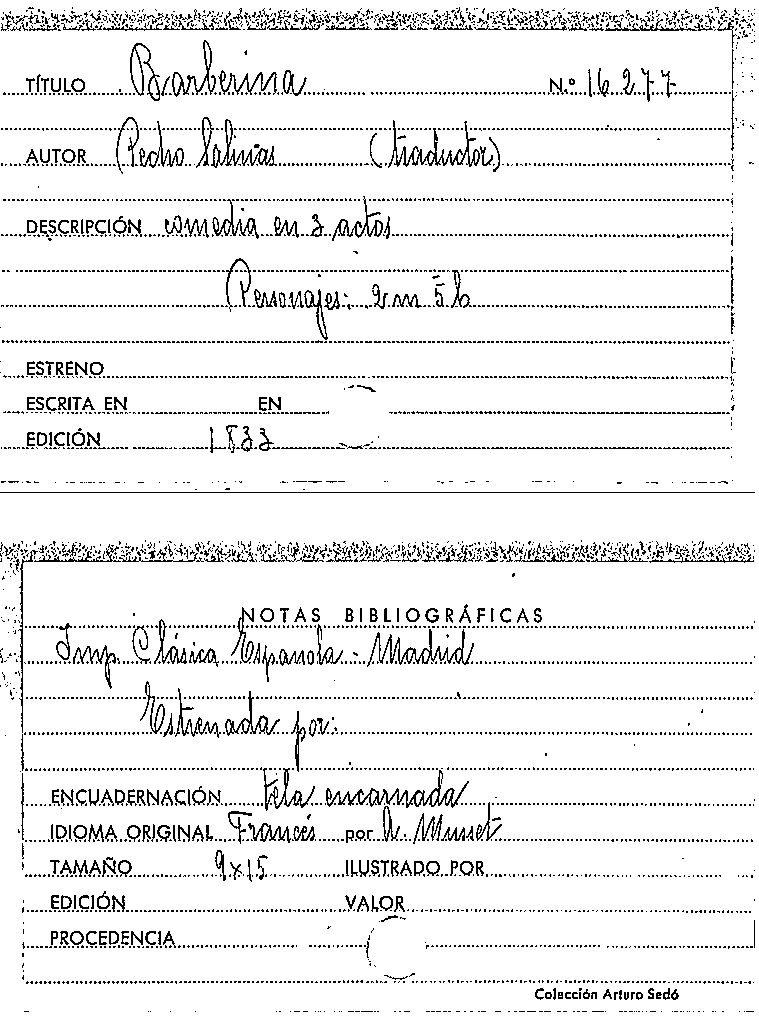 TÍTULO Barberina N.º 16277
AUTOR Pedro Salinas (traductor)
DESCRIPCIÓN comedia en 3 actos
Personajes: 2 m 5 h
ESTRENO
ESCRITA EN EN
EDICIÓN 1833
NOTAS BIBLIOGRÁFICAS
Imp. Clásica Espanola - Madrid
Estrenada por:
ENCUADERNACIÓN tela encarnada
IDIOMA ORIGINAL Francés por A. Musset
TAMAÑO 9x15 ILUSTRADO POR
EDICIÓN VALOR
PROCEDENCIA
Colección Arturo Sedó